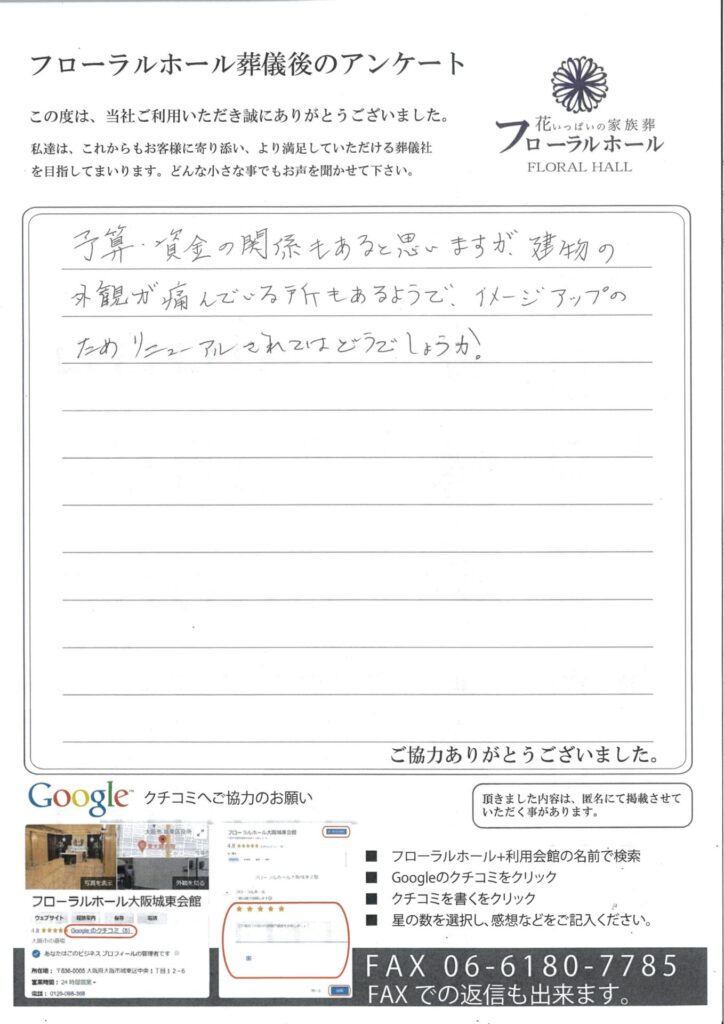 フローラルホール葬儀後のアンケート
この度は、当社ご利用いただき誠にありがとうございました。
私達は、これからもお客様に寄り添い、より満足していただける葬儀社
を目指してまいります。どんな小さな事でもお声を聞かせて下さい。
花いっぱいの家族葬
フローラルホール
FLORAL HALL
予算・資金の関係もあると思いますが、建物の
外観が痛んでいる所もあるようで、イメージアップの
ためリニューアルされてはどうでしょうか。
ご協力ありがとうございました。
Google クチコミへご協力のお願い
頂きました内容は、匿名にて掲載させて
いただく事があります。
大阪市 城東区役所
写真を表示
外観を見る
フローラルホール大阪城東会館
ウェブサイト
保存
4.8 ★★★★★ Google のクチコミ (8)
大阪市の斎場
あなたはこのビジネス プロフィールの管理者です
所在地: 〒536-0005 大阪府大阪市城東区中央1丁目12-6
営業時間: 24 時間営業
電話: 0120-098-368
フローラルホール大阪城東会館
4.8
■ フローラルホール+利用会館の名前で検索
■ Googleのクチコミをクリック
■ クチコミを書くをクリック
■ 星の数を選択し、感想などをご記入ください。
FAX 06-6180-7785
FAX での返信も出来ます。